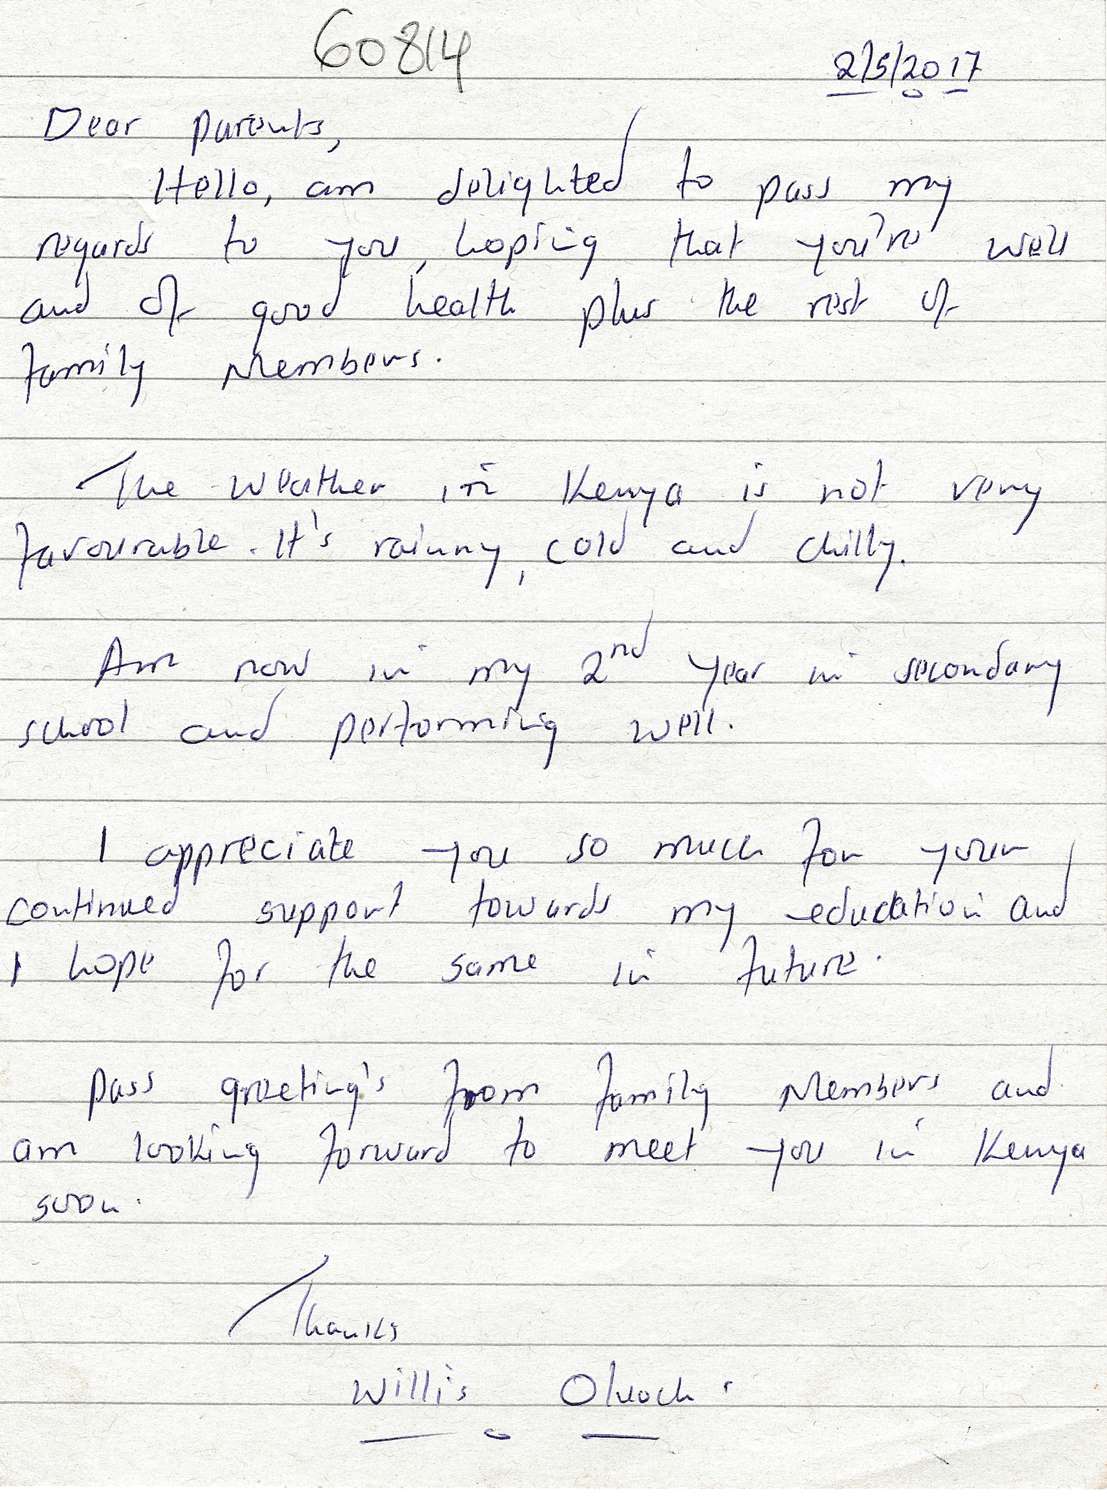 60814
2/5/2017
Dear parents,
Hello, am delighted to pass my
regards to you, hoping that you're well
and of good health plus the rest of
family Members.
The weather in Kenya is not very
favourable. It's rainny, cold and chilly.
Am now in my 2nd year in secondary
school and performing well.
I appreciate you so much for your
continued support towards my education and
I hope for the same in future.
Pass greeting's from family Members and
am looking forward to meet you in Kenya
soon.
Thanks
Willis Oluoch.